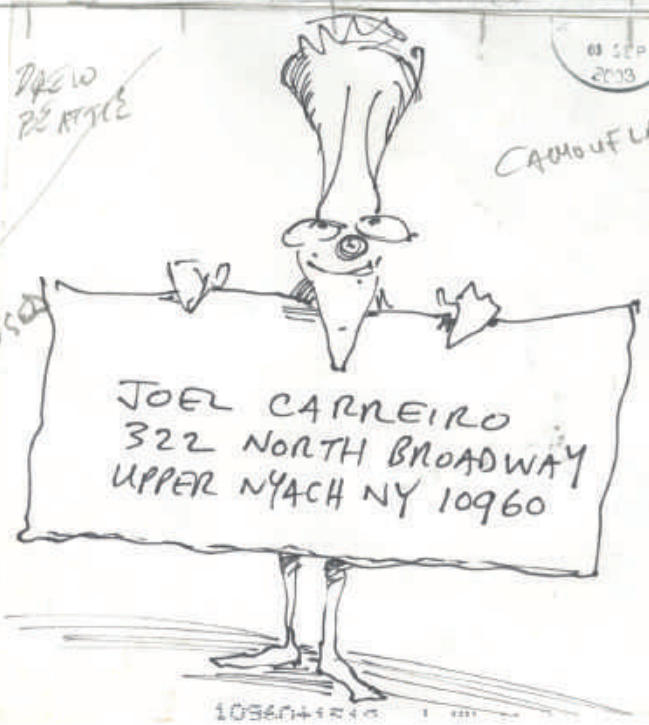 DREW
BEATTIE
08 SEP
2003
JOEL CARREIRO
322 NORTH BROADWAY
UPPER NYACH NY 10960